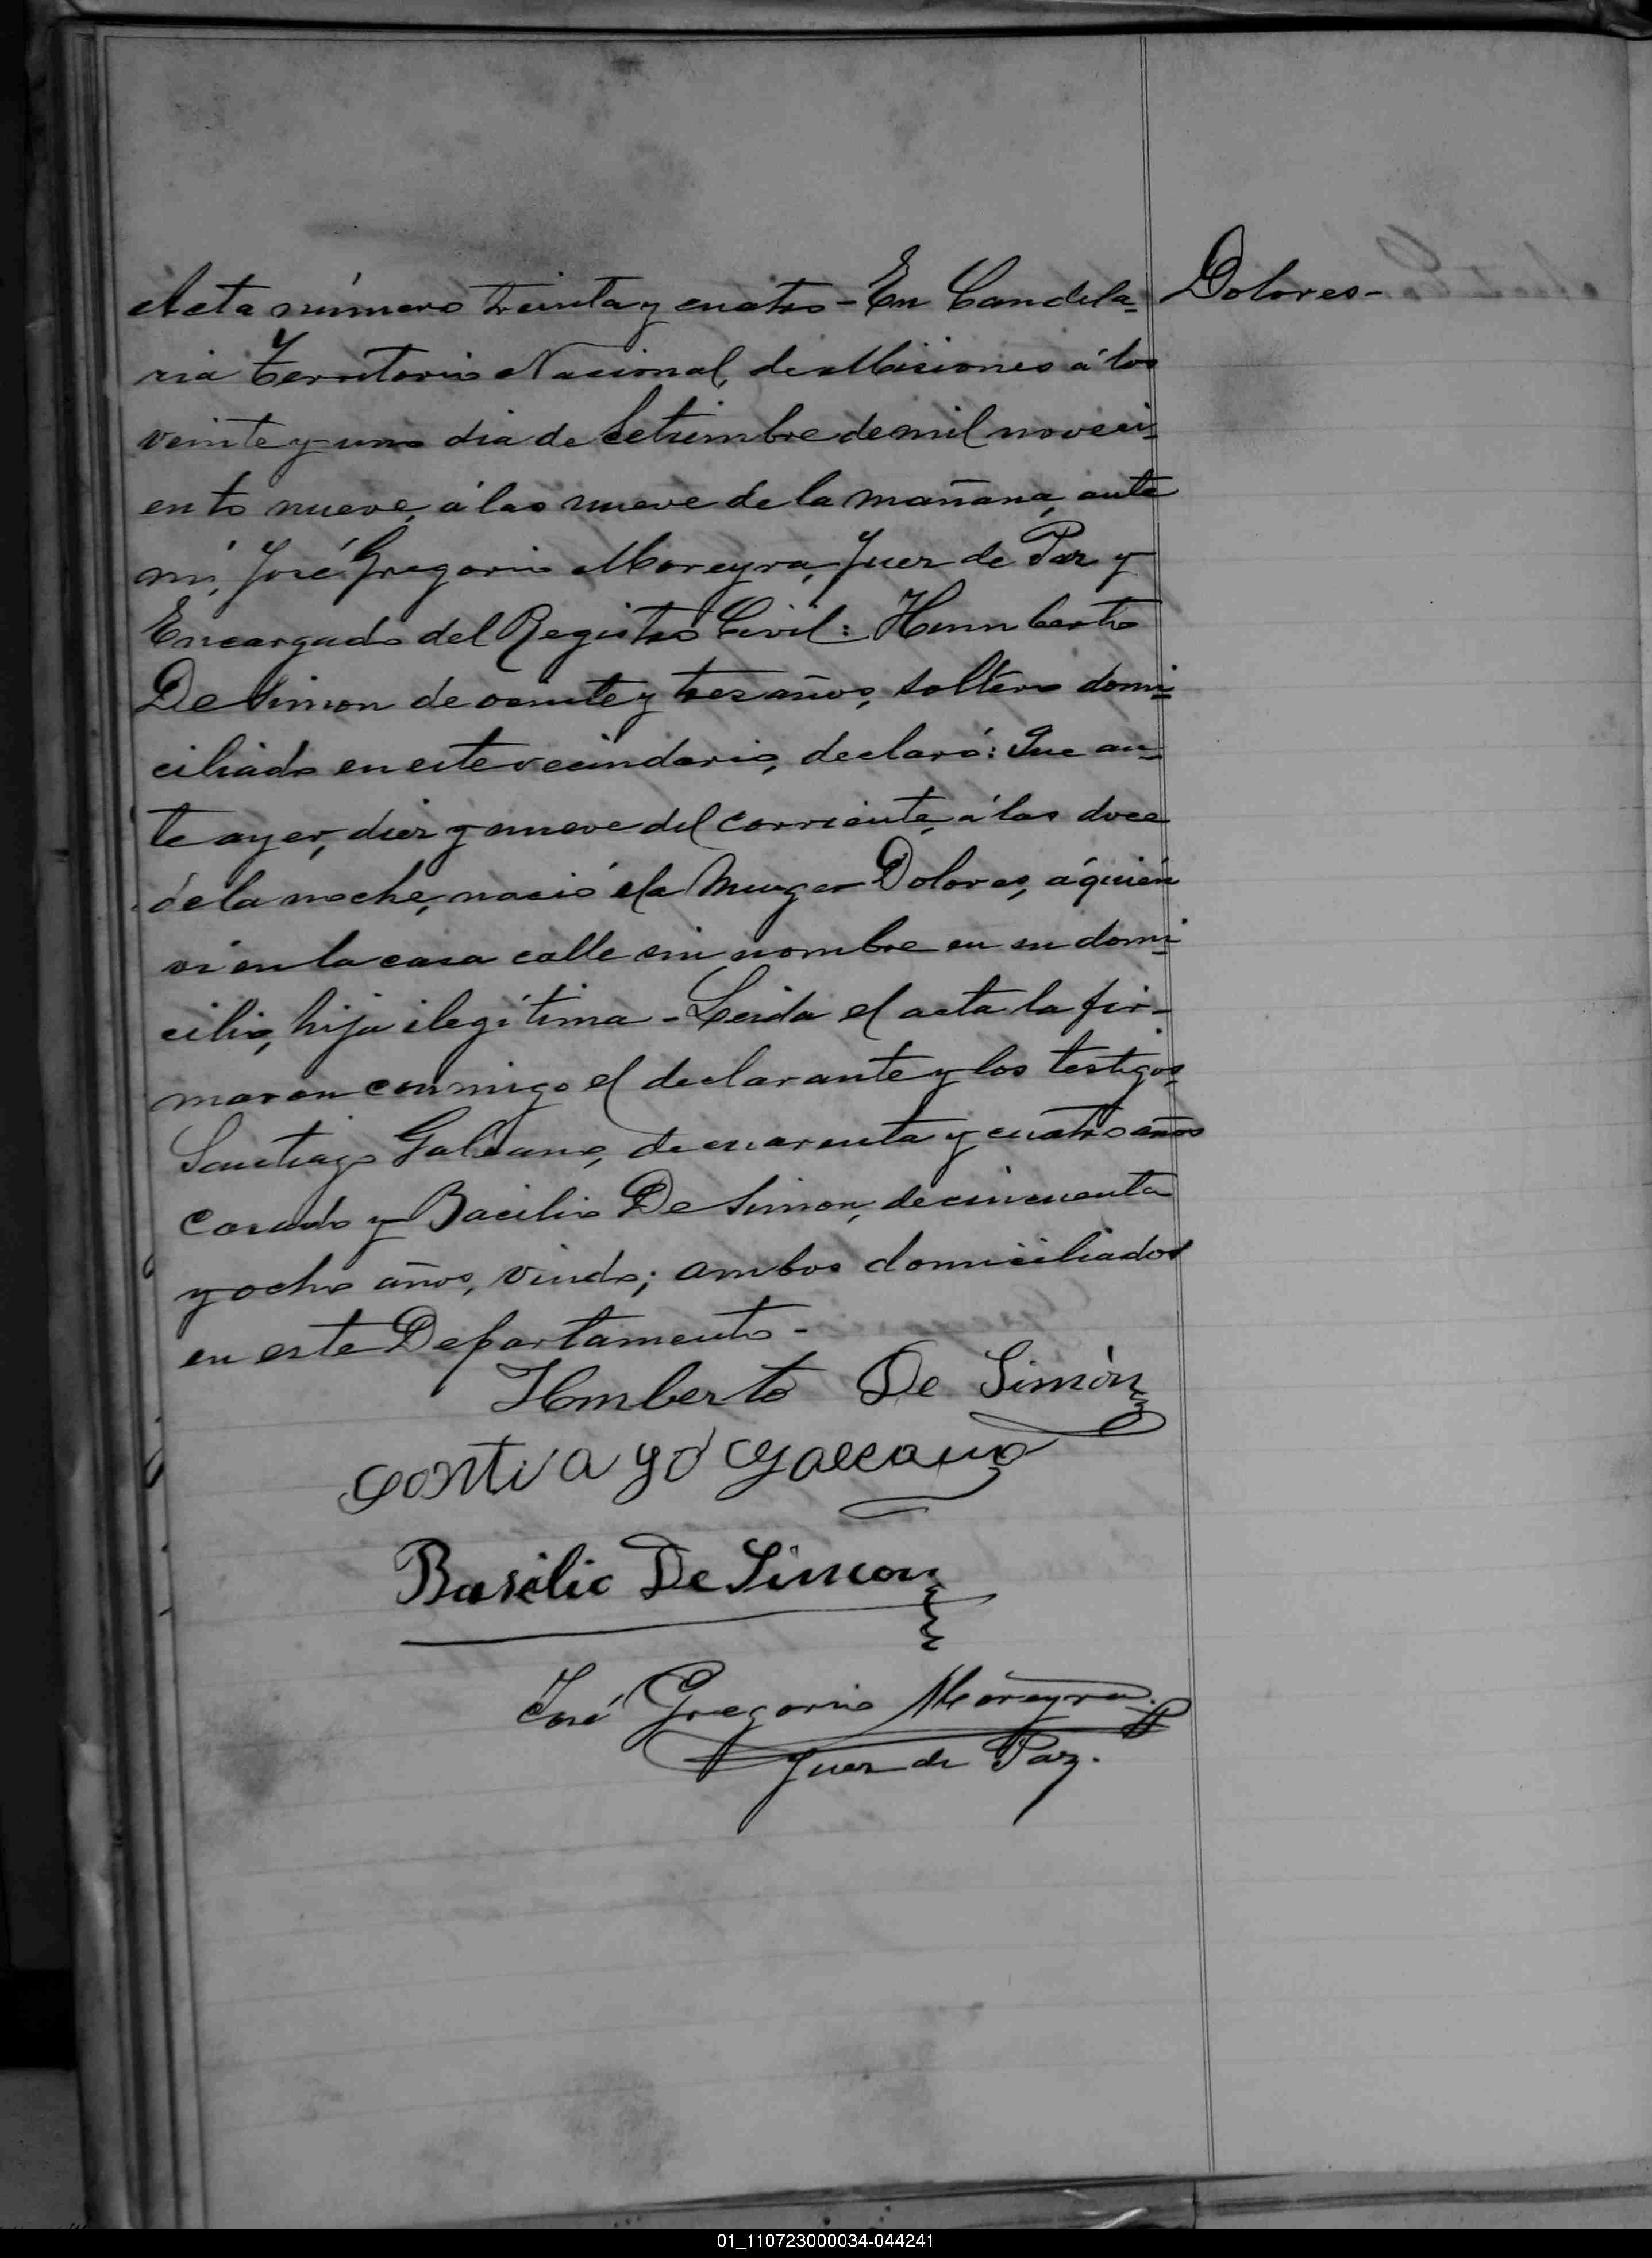 Acta número treinta y cuatro - En Candela-
Dolores-
ria Territorio Nacional, de Misiones á los
veinte y uno dia de Setiembre de mil noveci-
ento nueve, á las nueve de la mañana, ante
mi, José Gregorio Moreyra, Juez de Paz y
Encargado del Registro Civil: Humberto
De Simon de veinte y tres años, soltero domi-
ciliado en este vecindario, declaró: Que an-
te ayer, diez y nueve del corriente, á las doce
de la noche, nació la Muger Dolores, á quién
vi en la casa calle sin nombre en su domi-
cilio, hija ilegítima - Leida el acta la fir-
maron conmigo el declarante y los testigos,
Santiago Galeano, de cuarenta y cuatro años
casado y Bacilio De Simon, de cincuenta
y ocho años, viudo; ambos domiciliados
en este Departamento -
Humberto De Simón
Santiago Galeano
Basilio De Simon
José Gregorio Moreyra
Juez de Paz.
01_110723000034-044241